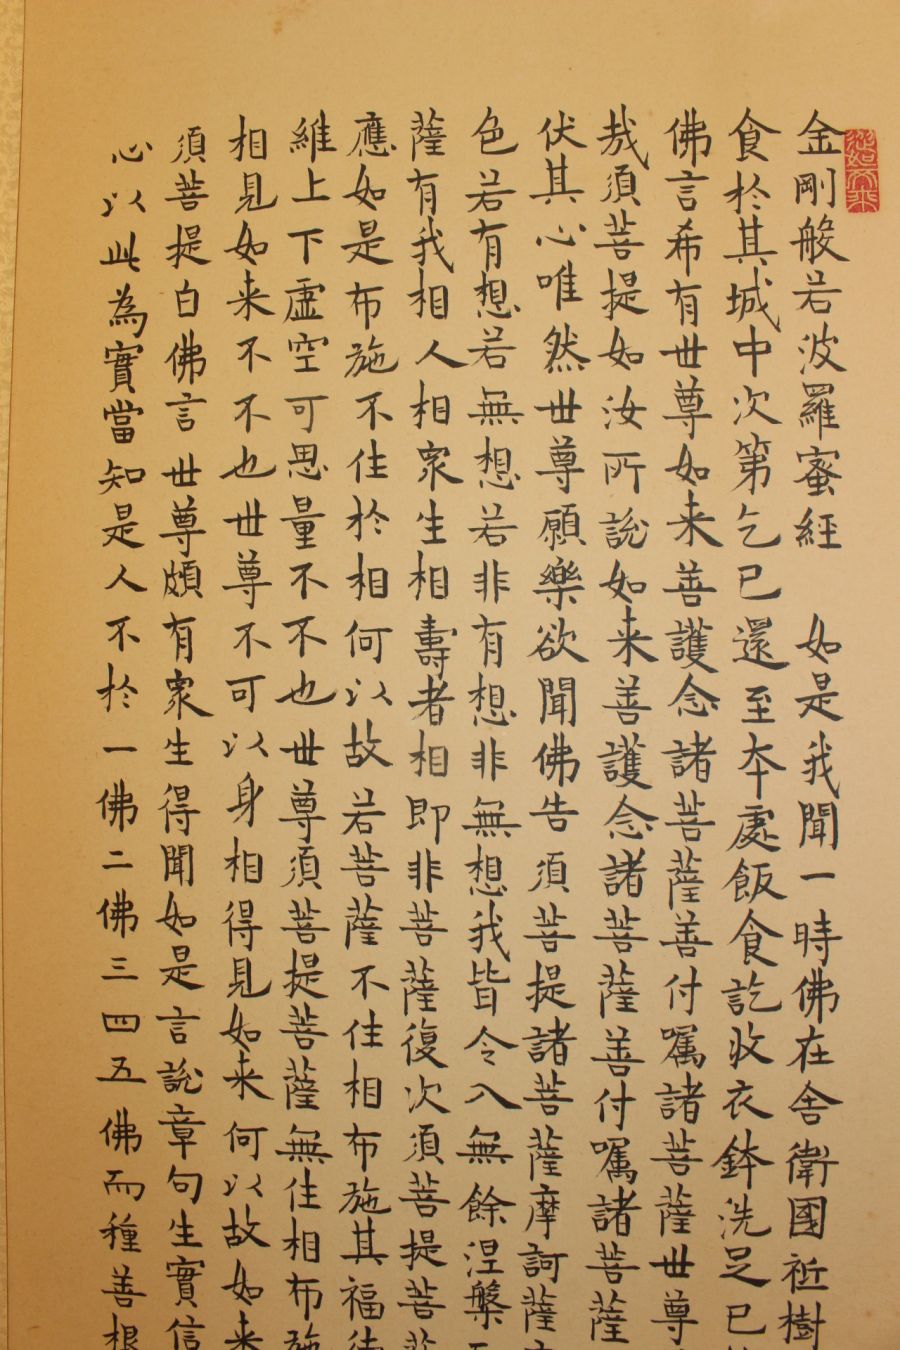 金剛般若波羅蜜經 如是我聞一時佛在舍衛國祇樹
食於其城中次第乞已還至本處飯食訖收衣鉢洗足已
佛言希有世尊如来善護念諸菩薩善付嘱諸菩薩世尊
哉須菩提如汝所說如来善護念諸菩薩善付嘱諸菩薩
伏其心唯然世尊願樂欲聞佛告須菩提諸菩薩摩訶薩
色若有想若無想若非有想非無想我皆令入無餘涅槃
薩有我相人相衆生相壽者相即非菩薩復次須菩提菩
應如是布施不住於相何以故若菩薩不住相布施其福
維上下虛空可思量不不也世尊須菩提菩薩無住相布施
相見如来不不也世尊不可以身相得見如来何以故如来
須菩提白佛言世尊頗有衆生得聞如是言說章句生實信
心以此為實當知是人不於一佛二佛三四五佛而種善根